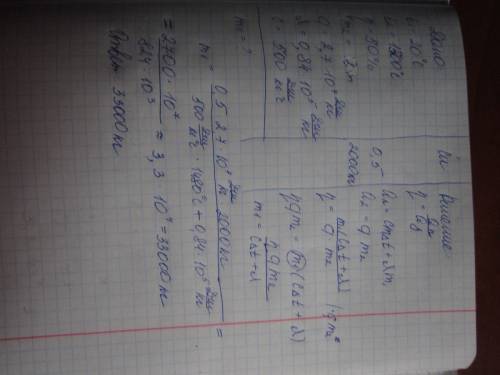 Дано:
t₁ = 20°C
t₂ = 1500°C
η = 50%
m₂ = 2т
q = 2,7·10⁷ Дж/кг
λ = 0,84·10⁵ Дж/кг
c = 500 Дж/кг°C
m₁ = ?
Си
0,5
2000кг
Решение
Qп = cm₁Δt + λm₁
Qз = q m₂
η = m₁(cΔt + λ) / q m₂ | · q m₂
ηqm₂ = m₁(cΔt + λ)
m₁ = η q m₂ / cΔt + λ
m₁ = 0,5 · 2,7·10⁷ Дж/кг · 2000кг / 500 Дж/кг°C · 1480°C + 0,84·10⁵ Дж/кг =
= 2700·10⁷ / 824·10³ = 3,3 · 10⁴ = 33000 кг
Ответ: 33000 кг